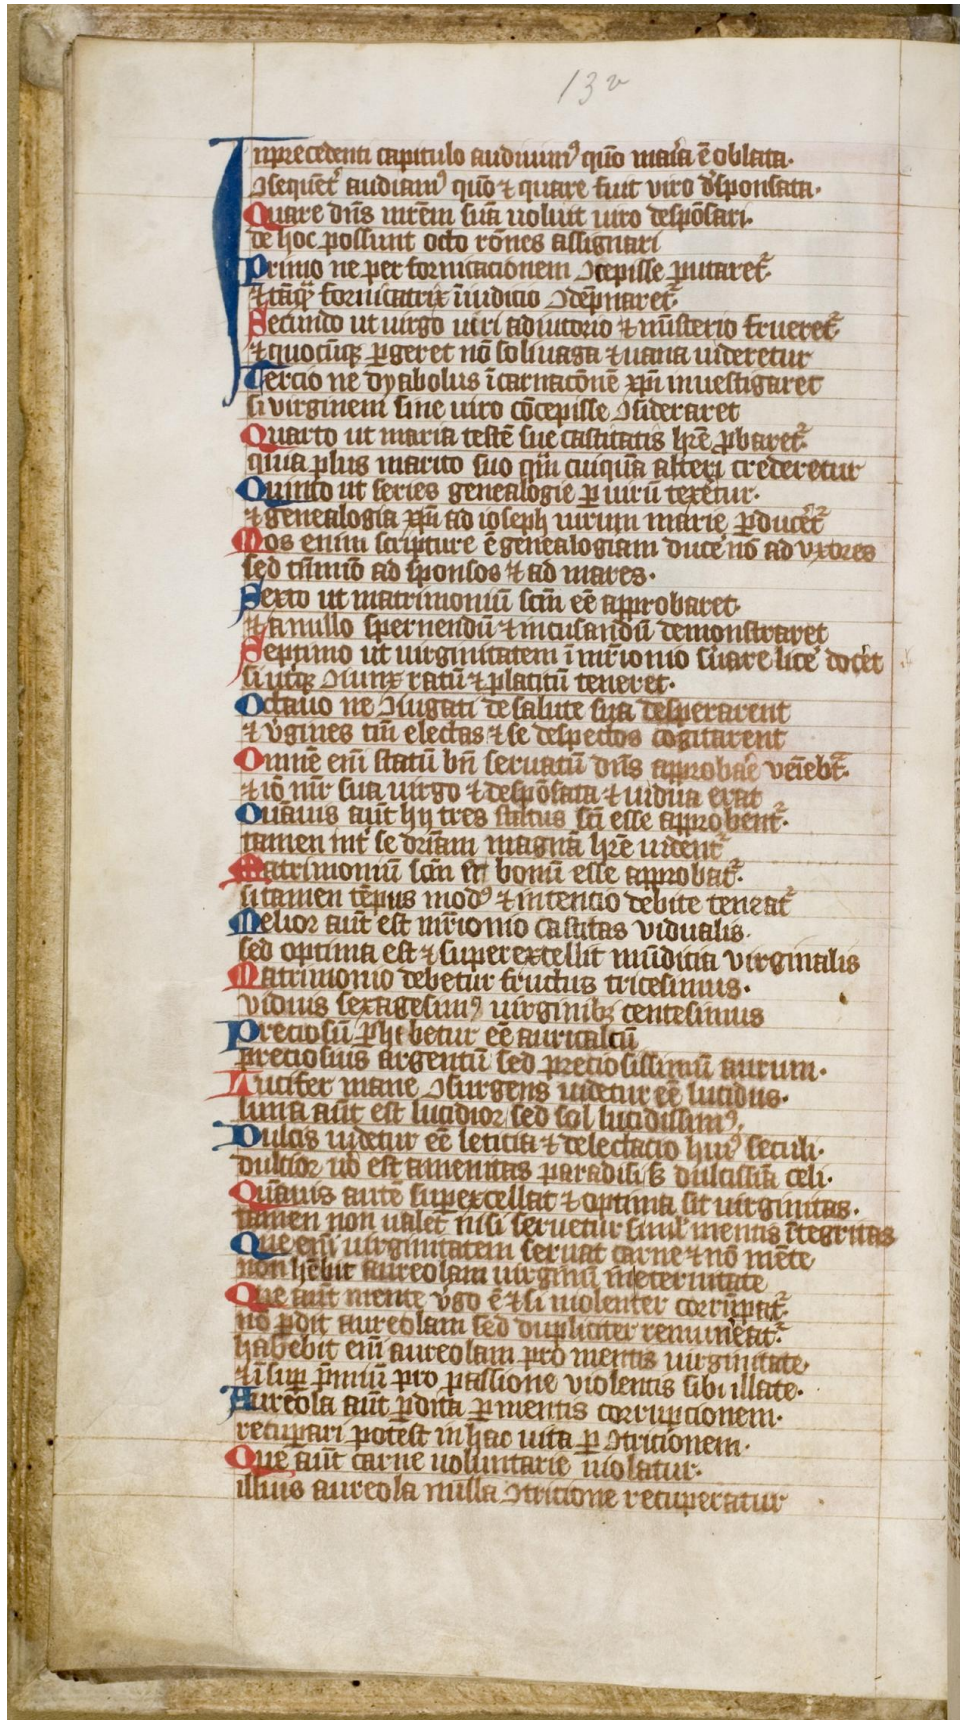 13v
In precedenti capitulo audiuimꝰ quō mar̄a ē oblata.
Ɔsequēt᷑ audiamꝰ quō ⁊ quare fuit viro dꝰsponsata.
Quare dn̄s mr̄em suā uoluit uiro despōsari.
de hoc possunt octo rōnes assignari
Primo ne per fornicacionem ɔcepisse putaret᷑.
⁊ tāqꝫ fornicatrix ī iudicio ɔdēpnaret᷑.
Secundo ut uirgo uiri adiutorio ⁊ mīsterio frueret᷑
⁊ quocūqꝫ ꝑgeret nō soliuaga ⁊ uana uideretur
Tercio ne dyabolus īcarnacōnē xp̄i inuestigaret
si virginem sine uiro cōcepisse ɔsideraret
Quarto ut maria testē sue castitatis hr̄e ꝓbaret᷑.
quia plus marito suo qm̄ cuiquā alteri crederetur
Quinto ut series genealogie ꝑ uirū texetur.
⁊ genealogia xp̄i ad ioseph uirum marie ꝑducet᷑
Mos enim scripture ē genealogiam duce᷑ nō ad vxores
sed tm̄mō ad sponsos ⁊ ad mares.
Sexto ut matrimoniū scm̄ eē approbaret
⁊ a nullo spernendū ⁊ incusandū demonstraret
Septimo ut uirginitatem ī mr̄ionio s̄uare lice᷑ docet᷑
si ut͛qꝫ ɔiunx ratū ⁊ placitū teneret.
Octauo ne ɔiugati de salute sua desperarent
⁊ v᷑gines tm̄ electas ⁊ se despectos cogitarent
Omnē enī statū bn̄ seruatū dn̄s approbar̄e veīebt᷑.
⁊ iō mr̄ sua uirgo ⁊ despōsata ⁊ uidua erat
Quāuis aūt hij tres status sc̄i esse approbent᷑.
tamen int᷑ se dr̄iam magnā hr̄e uident᷑
Matrimoniū scm̄ et bonū esse approbat᷑.
si tamen tēpus modꝰ ⁊ intencio debite teneat᷑
Melior aūt est mr̄ionio castitas vidualis.
sed optima est ⁊ superexcellit mūdicia virginalis
Matrimonio debetur fructus tricesimus.
viduis sexagesimꝰ uirginibꝫ centesimus
Preciosū ꝑhibetur eē auricalcū
preciosius argentū sed preciosissimū aurum.
Lucifer mane ɔsurgens uidetur eē lucidus.
luna aūt est lucidior sed sol lucidissimꝰ.
Dulcis uidetur eē leticia ⁊ delectacio huiꝰ seculi.
dulcior u͛o est amenitas paradisi s͛ dulcissīa celi.
Quāuis autē suꝑexcellat ⁊ optima sit uirginitas.
tamen non ualet nisi seruetur simul mentis ītegritas
Que enī uirginitatem seruat carne ⁊ nō mēte
non hēbit aureolam uirginū in eternitate
Que aūt mente v᷑go ē ⁊ si uiolenter corrūpat᷑.
nō ꝑdit aureolam sed dupliciter remuneat᷑.
habebit enī aureolam pro mentis uirginitate.
⁊ īsuꝑ p̄miū pro passione violentis sibi illate.
Aureola aūt ꝑdita ꝑ mentis corrupcionem.
recuꝑari potest in hac uita ꝑ ɔtricionem.
Que aūt carne uoluntarie uiolatur.
illius aureola nulla ɔtricione recuperatur